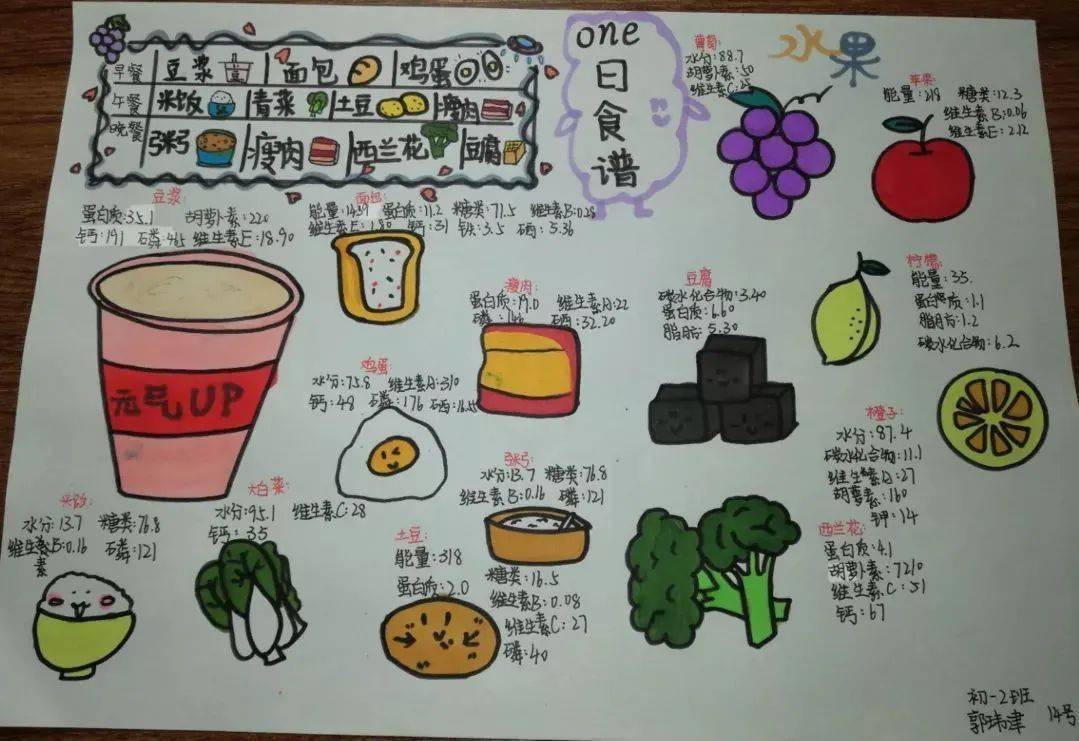 one
日
食
谱
早餐 豆浆 面包 鸡蛋
午餐 米饭 青菜 土豆 瘦肉
晚餐 粥 瘦肉 西兰花 豆腐
水果
葡萄:
水分:88.7
胡萝卜素:50
维生素C:25
苹果:
能量:218 糖类:12.3
维生素B:0.06
维生素E:2.12
豆浆:
蛋白质:35.1 胡萝卜素:220
钙:191 磷:465 维生素E:18.90
面包:
能量:1439 蛋白质:11.2 糖类:71.5 维生素B:0.28
维生素E:1.80 钙:31 铁:3.5 硒:5.36
瘦肉:
蛋白质:19.0 维生素A:22
磷:146 硒:32.20
豆腐
碳水化合物:3.40
蛋白质:6.60
脂肪:5.30
柠檬:
能量:33.
蛋白质:1.1
脂肪:1.2
碳水化合物:6.2
元气UP
鸡蛋
水分:75.8 维生素A:310
钙:48 磷:176 硒:16.55
橙子:
水分:87.4
碳水化合物:11.1
维生素A:27
胡萝素:160
钾:14
米饭:
水分:13.7 糖类:76.8
维生素B:0.16 磷:121
素
大白菜:
水分:95.1 维生素C:28
钙:35
粥:
水分:13.7 糖类:76.8
维生素B:0.16 磷:121
土豆:
能量:318
蛋白质:2.0
糖类:16.5
维生素B:0.08
维生素C:27
磷:40
西兰花:
蛋白质:4.1
胡萝卜素:7210
维生素C:51
钙:67
初一2班
郭玮津 14号